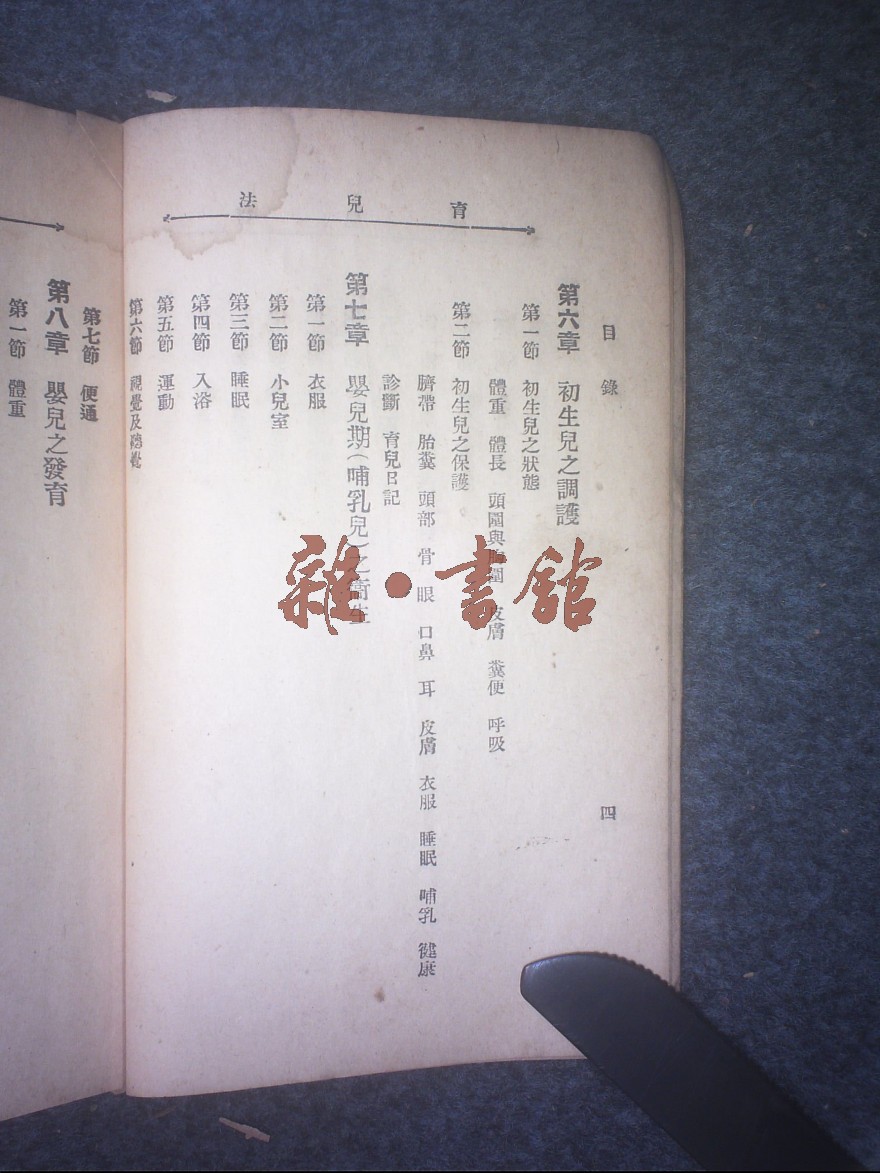 育兒法
目錄 四
第六章 初生兒之調護
第一節 初生兒之狀態
體重 體長 頭圍與胸圍 皮膚 糞便 呼吸
第二節 初生兒之保護
臍帶 胎糞 頭部 骨 眼 口鼻 耳 皮膚 衣服 睡眠 哺乳 健康
診斷 育兒日記
第七章 嬰兒期（哺乳兒）之衛生
第一節 衣服
第二節 小兒室
第三節 睡眠
第四節 入浴
第五節 運動
第六節 視覺及聽覺
第七節 便通
第八章 嬰兒之發育
第一節 體重
雜·書館